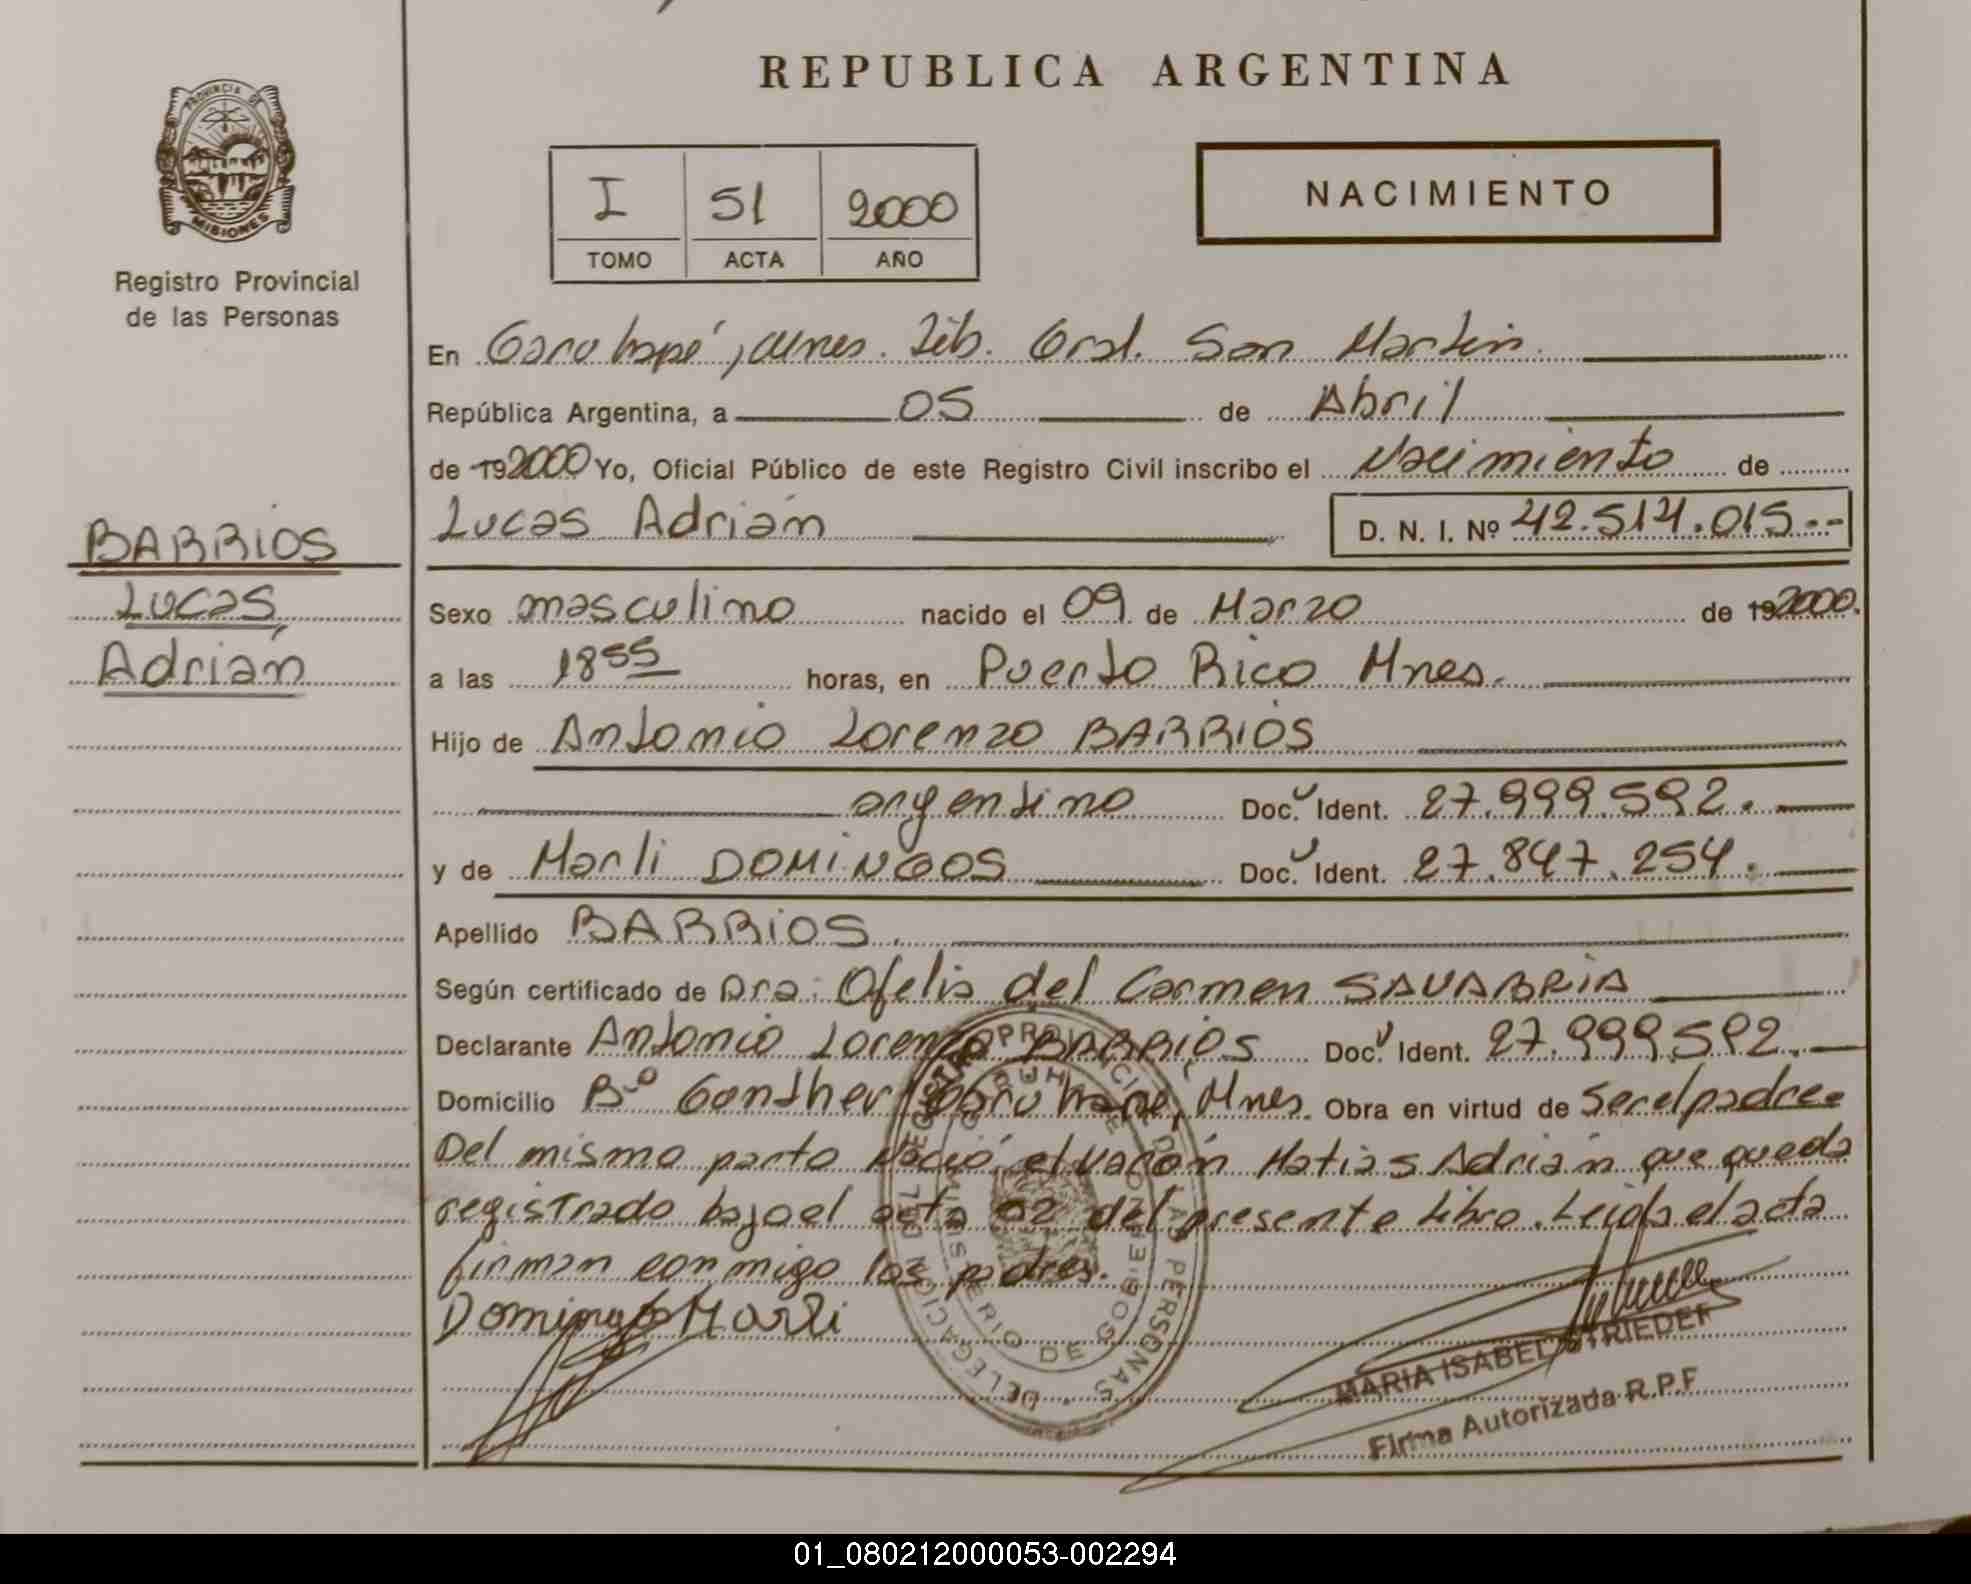 REPUBLICA ARGENTINA
PROVINCIA DE
MISIONES
Registro Provincial
de las Personas
I 51 2000
TOMO ACTA AÑO
NACIMIENTO
En Garuhapé, Mnes. Lib. Gral. San Martin.
República Argentina, a 05 de Abril
de 192000 Yo, Oficial Público de este Registro Civil inscribo el Nacimiento de
Lucas Adrián D. N. I. Nº 42.514.015.--
BARRIOS
Lucas
Adrián
Sexo masculino nacido el 09 de Marzo de 192000.
a las 18 55 horas, en Puerto Rico Mnes.
Hijo de Antonio Lorenzo BARRIOS
argentino Doc. Ident. 27.999.592.
y de Marli DOMINGOS Doc. Ident. 27.847.254.
Apellido BARRIOS.
Según certificado de Dra: Ofelia del Carmen
Declarante Antonio Lorenzo BARRIOS Doc. Ident. 27.999.592.
Domicilio Bº Gonther Garuhapé, Mnes. Obra en virtud de Ser el padre
Del mismo parto Nació el varón Matias Adrián que queda
registrado bajo el acta 52 del presente Libro. Leida el acta
firman conmigo los padres.
Domingos Marli
MARIA ISABEL STRIEDER
Firma Autorizada R.P.F
DELEGACION DEL REGISTRO PROVINCIAL DE LAS PERSONAS
MINISTERIO DE GOBIERNO
01_080212000053-002294